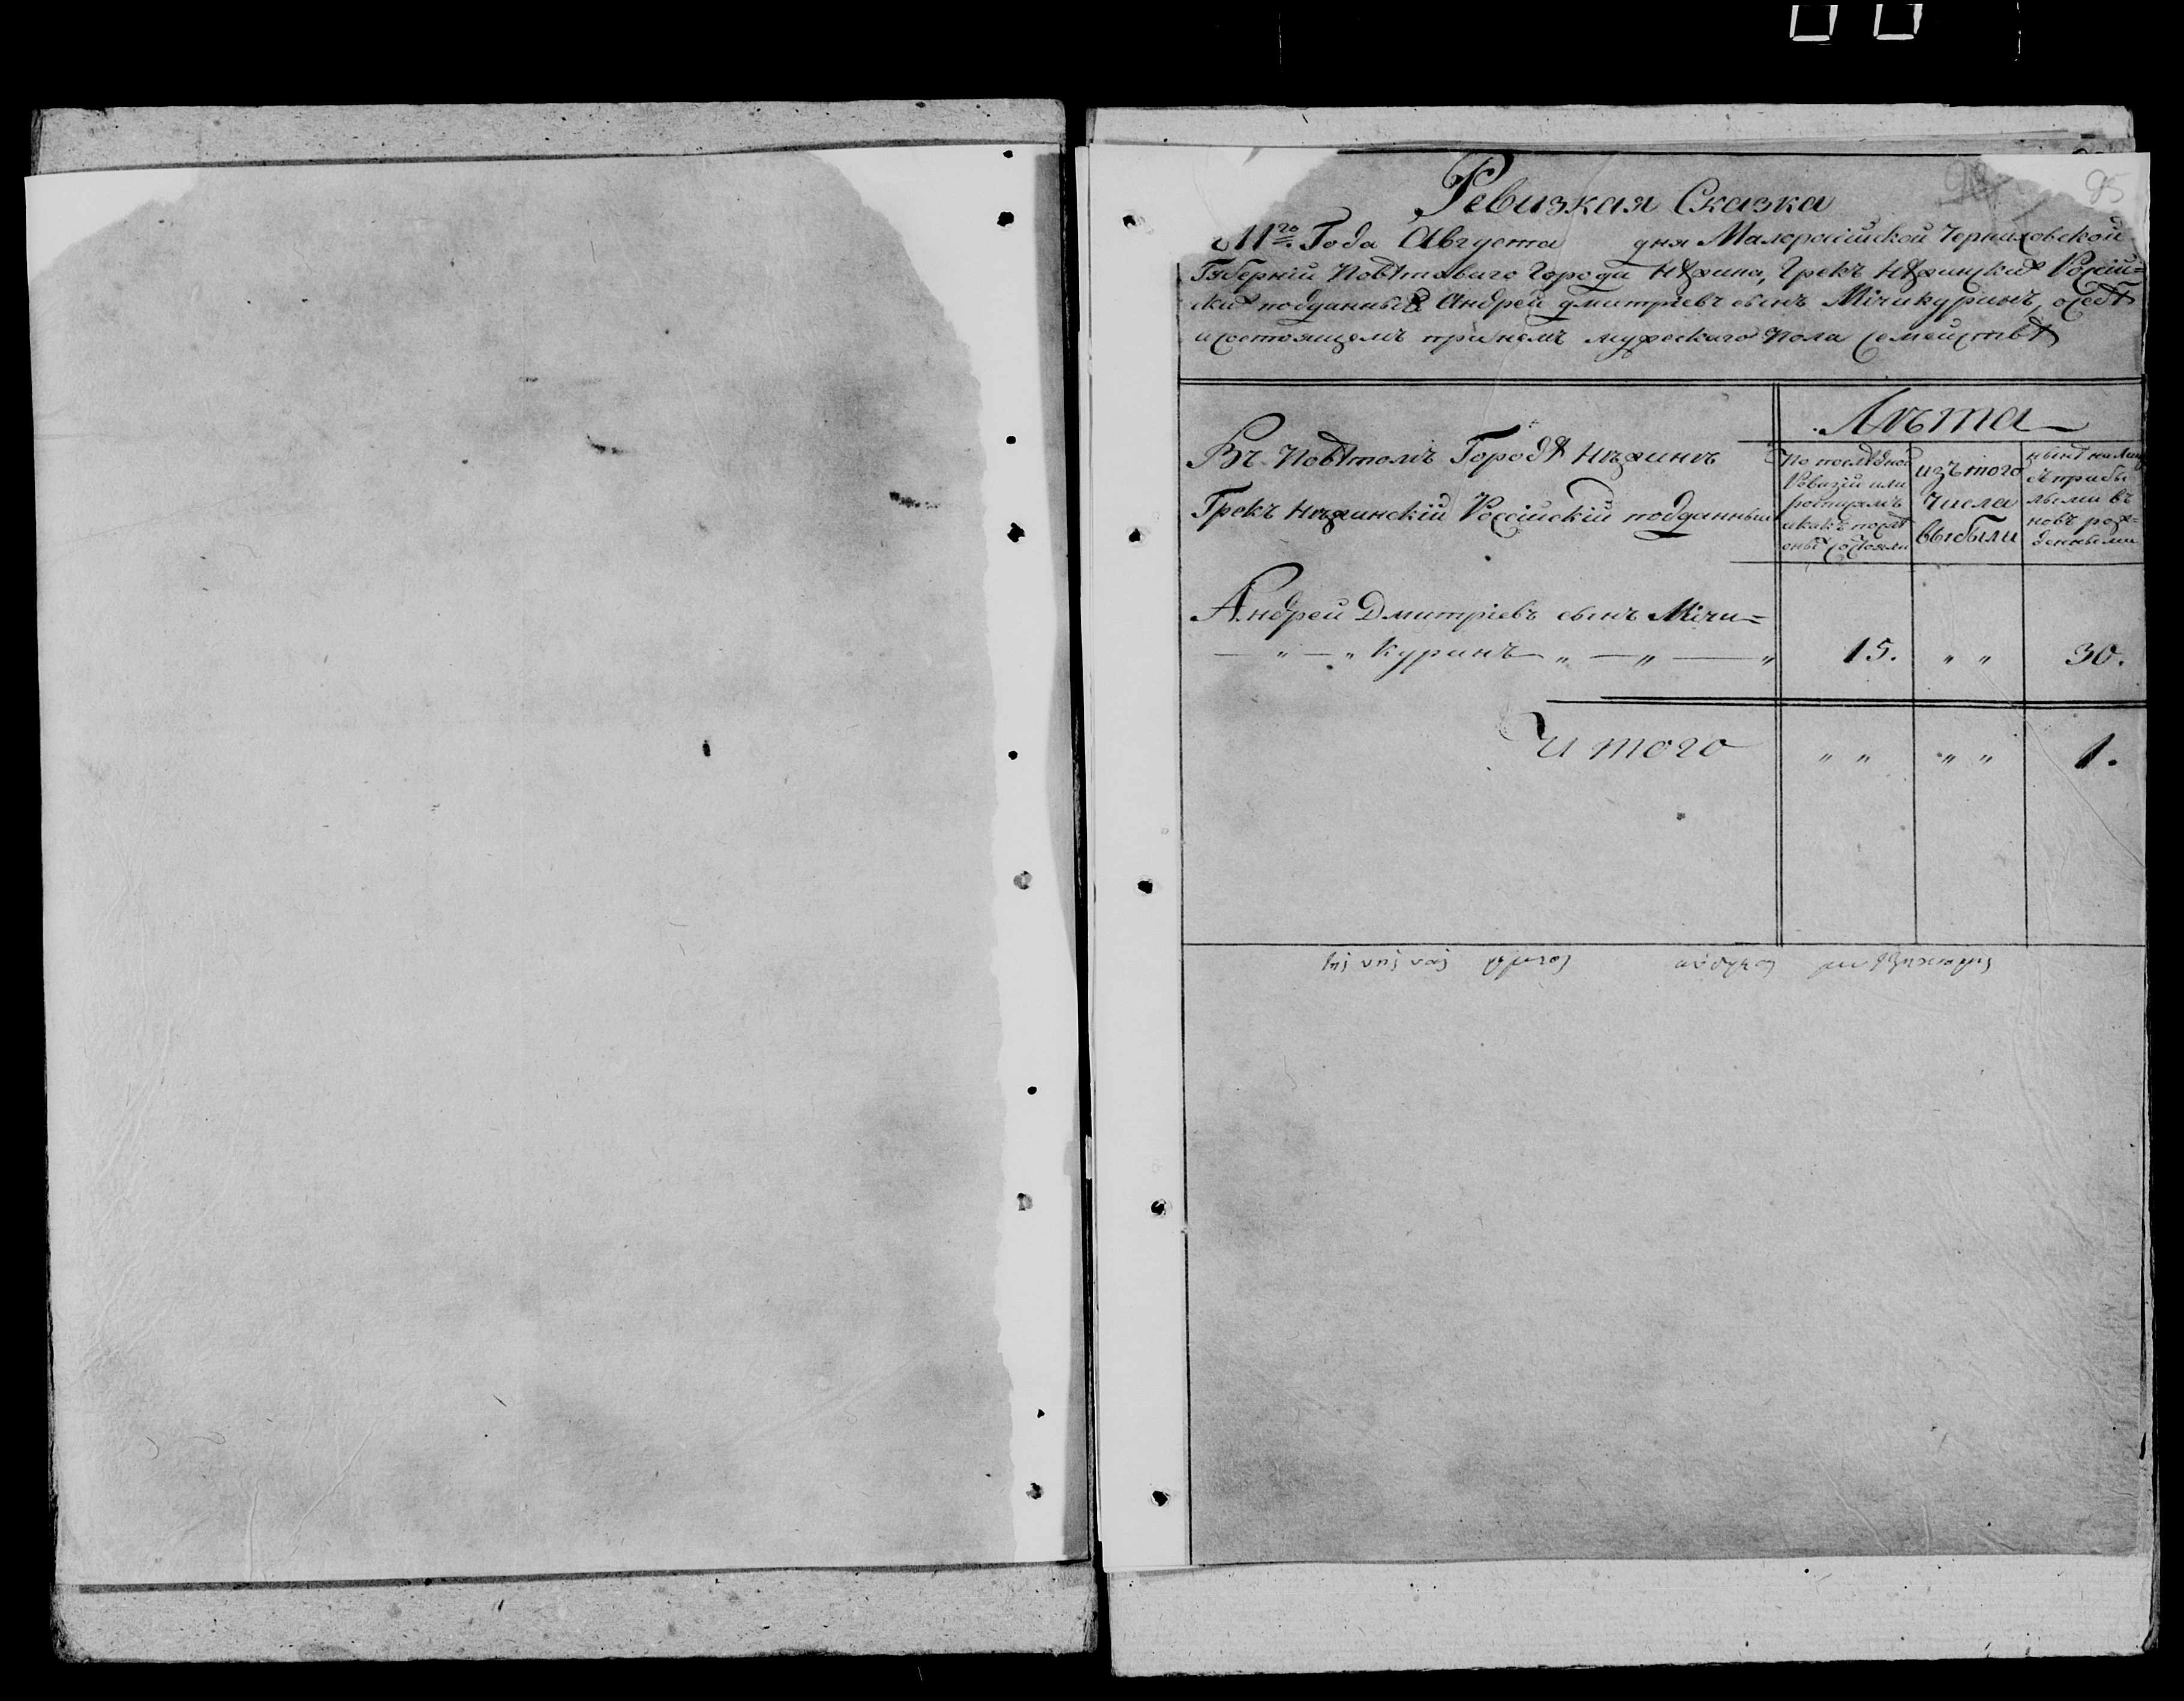 95
Ревизкая Сказка
11го Года Августа дня Малоросійской Черниговской
Губерніи Повѣтоваго Города Нѣжина, Грекъ Нѣжинских Россій=
ских подданных Андрей дмитріевъ сынъ Мічикуринъ, осебѣ
исостоящемъ принемъ мужескаго пола семействѣ
Въ Повѣтомъ Городѣ Нѣжинѣ
Грекъ Нѣжинскій Россійскій подданный
Лѣта
По последной
Ревизіи или
икакъ послѣ
оных состояли
изъ того
числа
выбыли
нынѣ на лицѣ
съ прибы
лыми въ
новъ рож=
денными
Андрей Дмитріевъ сынъ Мічи=
куринъ 15. „ „ 30.
Итого „ „ „ „ 1.